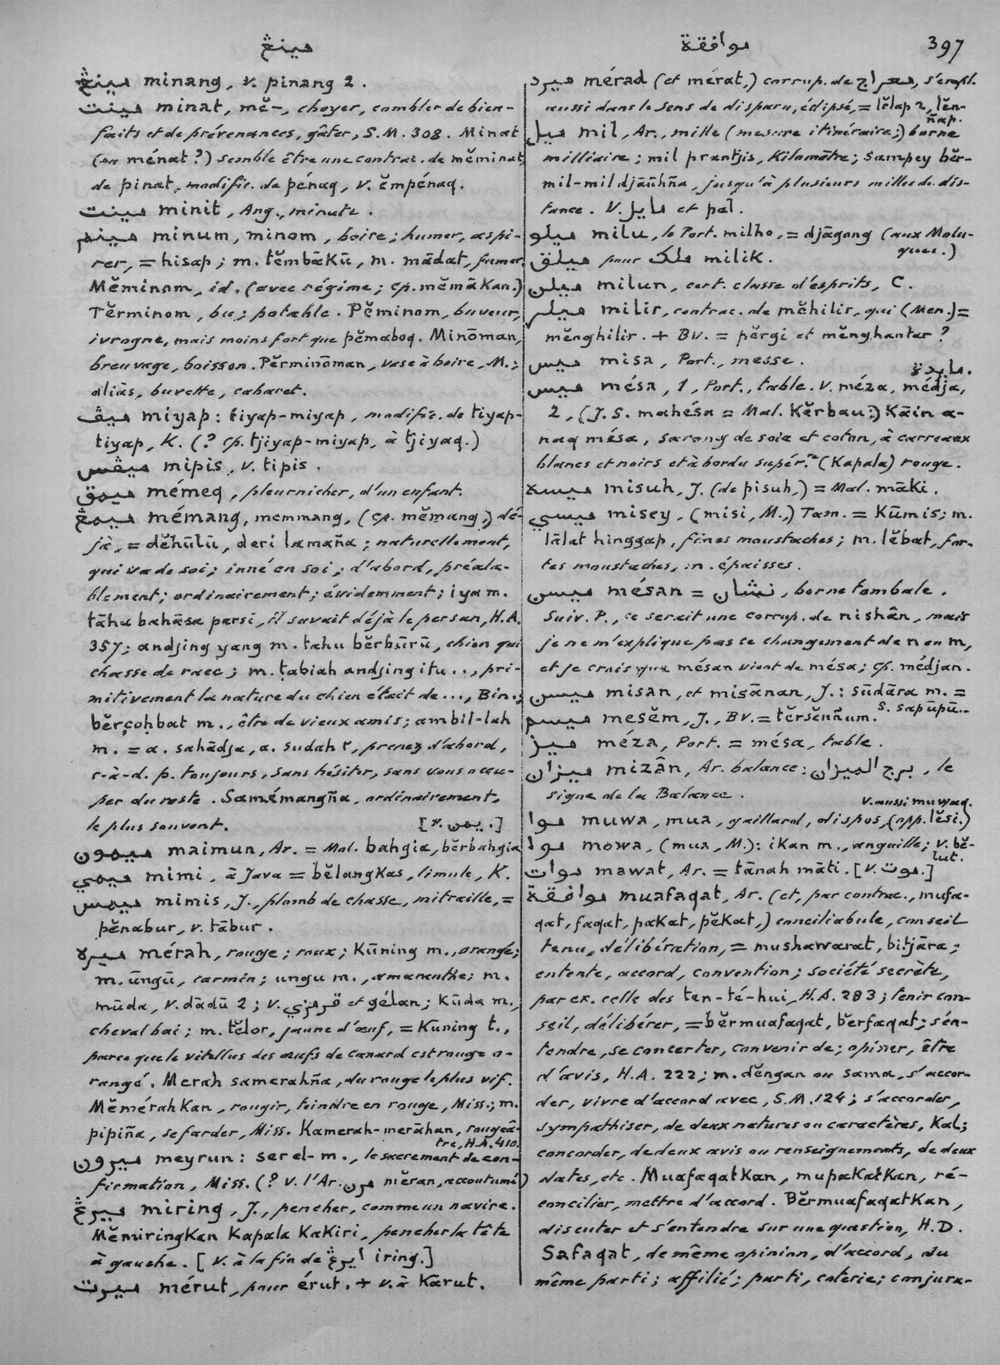 مينڠ
موافقة
397
مينڠ minang, v. pinang 2.
مينت minat, mĕ-, choyer, combler de bien-
faits et de prévenances, gâter, S.M. 308. Minat
(ou ménat?) semble être une contrac. de mĕminat
de pinat, modific. de pénaq, v. ĕmpénaq.
مينت minit, Ang., minute.
مينم minum, minom, boire; humer, aspi-
rer, = hisap; m. tĕmbākū, m. mādat, fumer
Mĕminom, id. (avec régime; cp. mĕmākan.)
Tĕrminom, bu; potable. Pĕminom, buveur,
ivrogne, mais moins fort que pĕmaboq. Minōman,
breuvage, boisson. Pĕrminōman, vase à boire, M.;
aliàs, buvette, cabaret.
ميڤ miyap: tiyap-miyap, modific. de tiyap-
tiyap, K. (? cp. tjiyap-miyap, à tjiyaq.)
ميڤس mipis, v. tipis.
ميمق mémeq, pleurnicher, d'un enfant.
ميمڠ mémang, memmang, (cp. mĕmang,) dé-
jà, = dĕhūlū, deri lamaña; naturellement,
qui va de soi; inné en soi; d'abord, préala-
blement; ordinairement; évidemment; iya m.
tāhu bahāsa parsi, il savait déjà le persan, H.A.
357; andjing yang m. tahu bĕrbūrū, chien qui
chasse de race; m. ṭabiah andjing itu..., pri-
mitivement la nature du chien était de..., Bin.;
bĕrçoḥbat m., être de vieux amis; ambil-lah
m. = a. sahādja, a. sudah², prenez d'abord,
c-à-d. p. toujours, sans hésiter, sans vous occu-
per du reste. Samémangña, ordinairement,
le plus souvent. [v. يمن.]
ميمون maimun, Ar. = Mal. bahgia, bĕrbahgia
ميمي mimi, à Java = bĕlangkas, limule, K.
ميمس mimis, J., plomb de chasse, mitraille, =
pĕnabur, v. tābur.
ميره mérah, rouge; roux; Kūning m., orangé;
m. ūngū, carmin; ungu m., amaranthe; m.
mūda, v. dādū 2; v. قرمزي et gélan; Kūda m.,
cheval bai; m. tĕlor, jaune d'œuf, = Kuning t.,
parce que le vitellus des œufs de canard est rouge o-
rangé. Merah samerahña, du rouge le plus vif.
Mĕmérahkan, rougir, teindre en rouge, Miss.; m.
pipiña, se farder, Miss. Kamerah-merāhan, rougeâ-
tre, H.A. 410.
ميرون meyrun: serel-m., le sacrement de con-
firmation, Miss. (? v. l'Ar. مرن mĕran, accoutumé)
ميرڠ miring, J., pencher, comme un navire.
Mĕmiringkan Kapala Kakiri, pencher la tête
à gauche. [v. à la fin de ايرڠ iring.]
ميرت mérut, pour érut. + v. à Kārut.
ميرد mérad (et mérat,) corrup. de معراج, s'empl.
aussi dans le sens de disparu, éclipsé, = lĕlap 2, lĕn-
ñap.
ميل mil, Ar., mille (mesure itinéraire;) borne
milliaire; mil prantjis, kilomètre; sampey bĕr-
mil-mil djāūhña, jusqu'à plusieurs milles de dis-
tance. V. مايل et pal.
ميلو milu, le Port. milho, = djāgong (aux Molu-
ques.)
ميلق pour ملک milik.
ميلن milun, cert. classe d'esprits, C.
ميلر milir, contrac. de mĕhilir, qui (Men.) =
mĕnghilir. + Bv. = pĕrgi et mĕnghantar?
ميس misa, Port., messe.
ميس mésa, 1, Port., table. V. méza, médja, مايدة.
2, (J. S. mahésa = Mal. Kĕrbau:) Kāin a-
naq mésa, sarong de soie et coton, à carreaux
blancs et noirs et à bordure supér.re (Kapala) rouge.
ميسه misuh, J. (de pisuh,) = Mal. māki.
ميسي misey, (misi, M.,) Tam. = Kūmis; m.
lālat hinggap, fines moustaches; m. lĕbat, for-
tes moustaches, m. épaisses.
ميسن mésan = نشان, borne tombale.
Suiv. P., ce serait une corrup. de nishân, mais
je ne m'explique pas ce changement de n en m,
et je crois que mésan vient de mésa; cp. médjan.
ميسن misan, et misānan, J.: sūdāra m. =
s. sapūpū.
ميسم mesĕm, J., Bv. = tĕrsĕnñum.
ميز méza, Port. = mésa, table.
ميزان mizân, Ar. balance: برج الميزان, le
signe de la Balance.
موا muwa, mua, gaillard, dispos, (opp. lĕsi.)
v. aussi muwaq.
موا mowa, (mua, M.): ikan m., anguille; v. bĕ-
lut.
موات mawat, Ar. = tānah māti. [v. موت.]
موافقة muafaqat, Ar. (et, par contrac., mufa-
qat, faqat, pakat, pĕkat,) conciliabule, conseil
tenu, délibération, = mushawarat, bitjāra;
entente, accord, convention; société secrète,
par ex. celle des ten-té-hui, H.A. 283; tenir con-
seil, délibérer, = bĕrmuafaqat, bĕrfaqat; s'en-
tendre, se concerter, convenir de; opiner, être
d'avis, H.A. 222; m. dĕngan ou sama, s'accor-
der, vivre d'accord avec, S.M. 124; s'accorder,
sympathiser, de deux natures ou caractères, Kal.;
concorder, de deux avis ou renseignements, de deux
dates, etc. Muafaqatkan, mupakatkan, ré-
concilier, mettre d'accord. Bĕrmuafaqatkan,
discuter et s'entendre sur une question, H.D.
Safaqat, de même opinion, d'accord, du
même parti; affilié; parti, coterie; conjura-